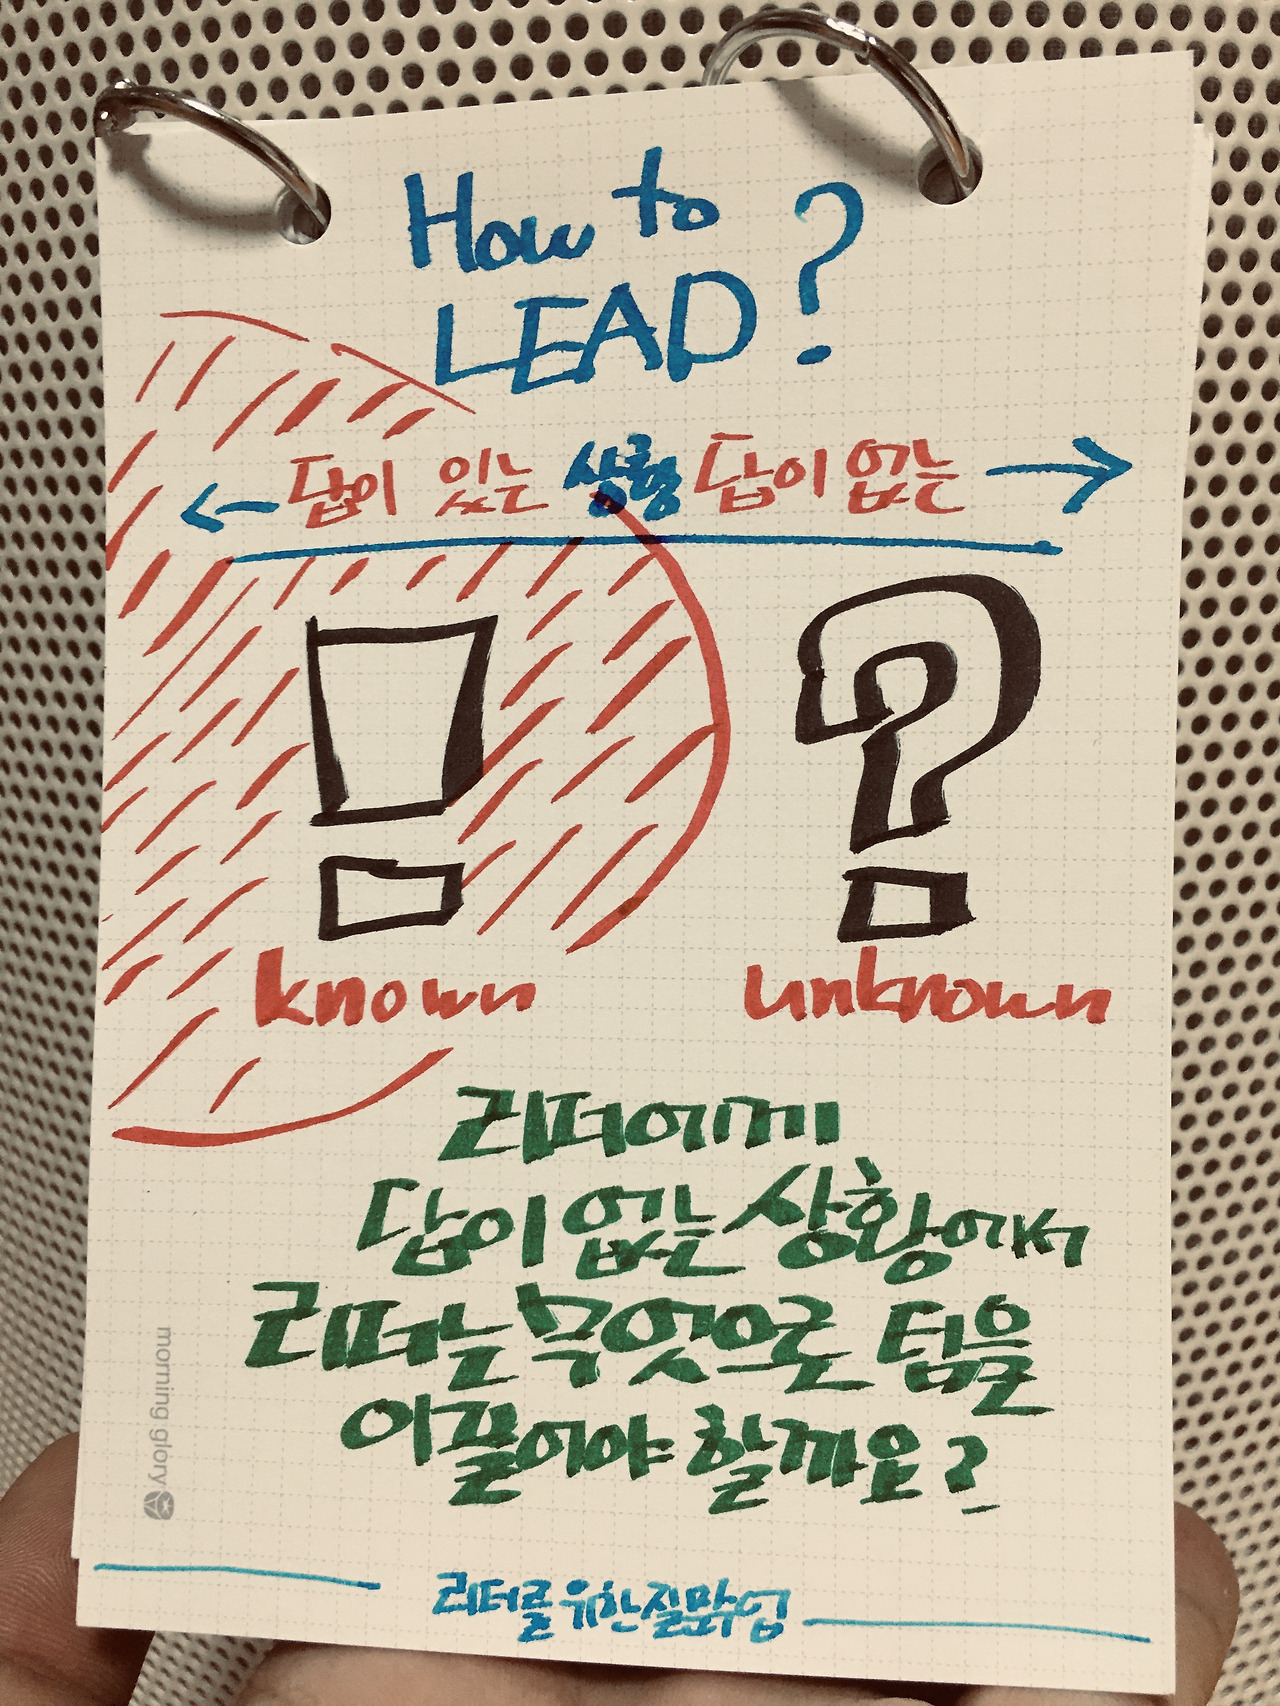 How to
LEAD?
답이 있는 상황 답이 없는
known
unknown
리더에게
답이 없는 상황에서
리더는 무엇으로 팀을
이끌어야 할까요?
morning glory
리더를 위한 질문수업